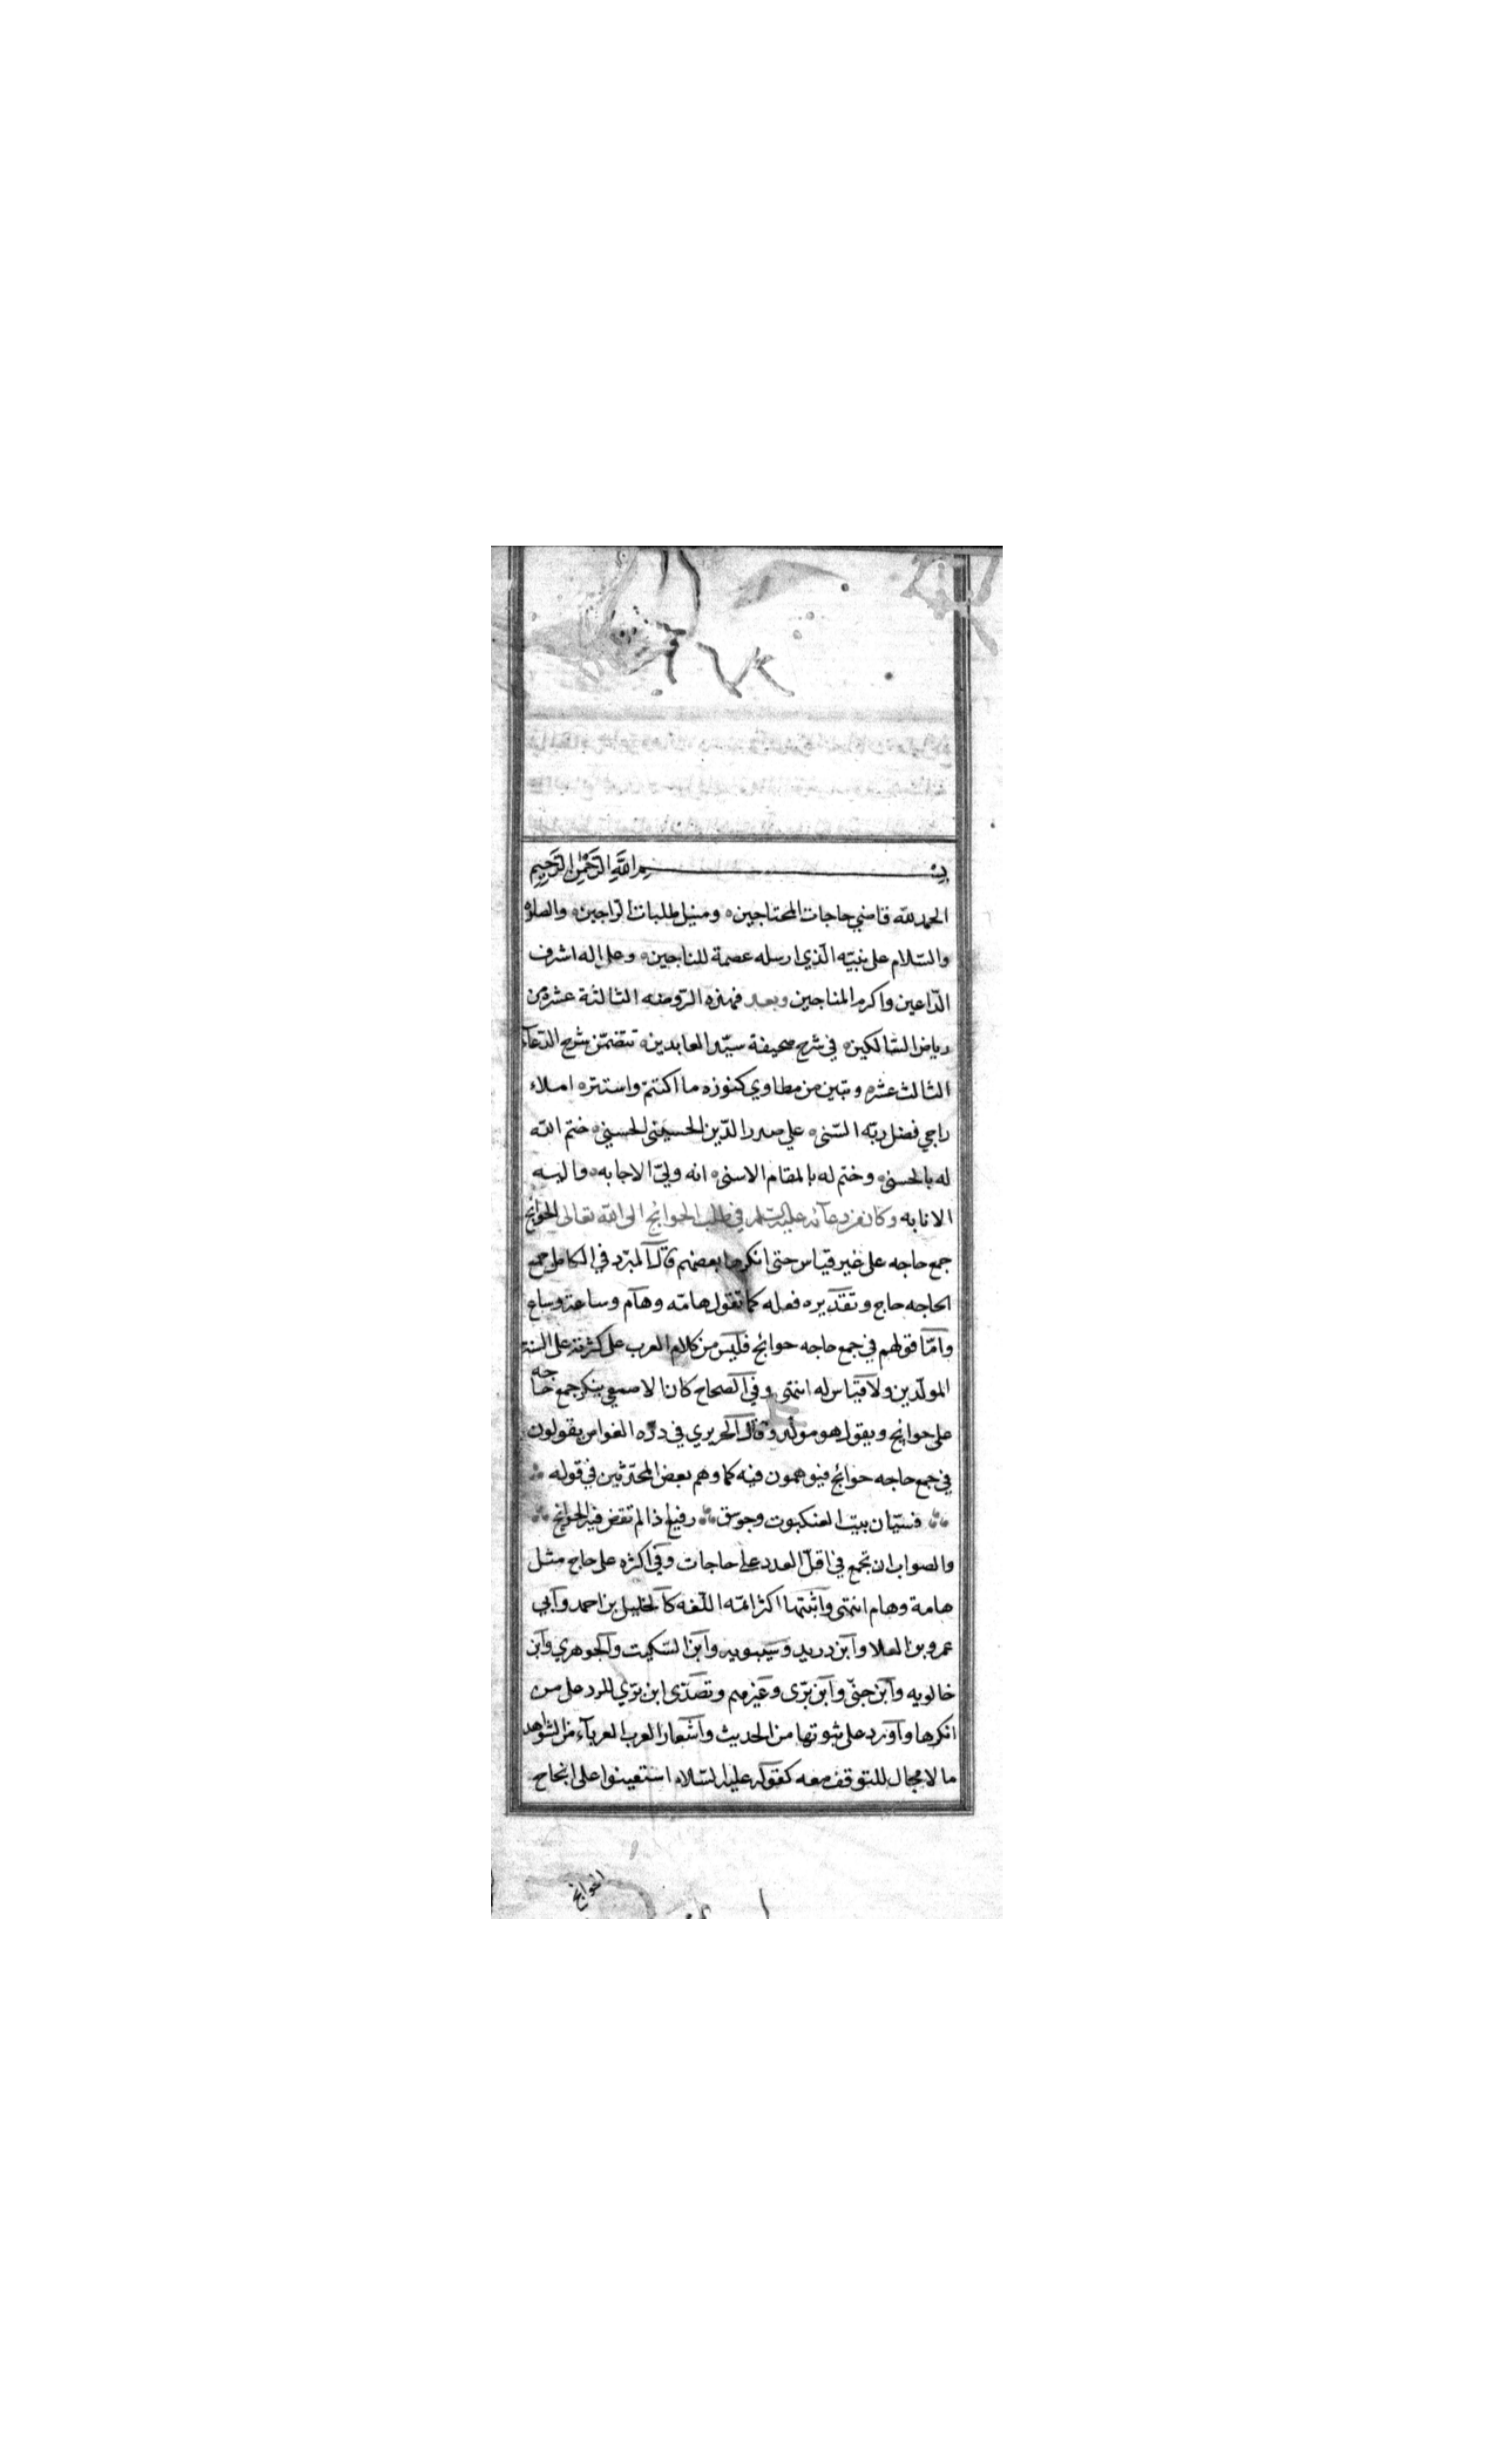 بسم الله الرَّحْمٰنِ الرَّحِيمِ
الحمد لله قاضي حاجات المحتاجين ومنيل طلبات الراجين والصلوة
والسّلام على نبيّه الّذي ارسله عصمة للناجين وعلى اله اشرف
الدّاعين واكرم المناجين وبعد فهذه الرّوضه الثالثة عشره من
رياض السّالكين في شرح صحيفة سيّد العابدين تتضمّن شرح الدّعآء
الثالث عشر وتبين من مطاوي كنوزه ما اكتتم واستتره املاء
راجي فضل ربّه السّنى علي صدر الدّين الحسينى الحسيني ختم الله
له بالحسنى وختم له بالمقام الاسنى انه وليّ الاجابه واليه
الانابه وكان من دعآئه عليه السّلم في طلب الحوائج الى الله تعالى الحوائج
جمع حاجه على غير قياس حتى انكرها بعضهم قال المبرّد في الكامل جمع
الحاجه حاج وتقديره فعله كما تقول هامّه وهآم وساعة وساع
وامّا قولهم في جمع حاجه حوائج فليس من كلام العرب على كثرته على السنة
المولّدين ولا قياس له انتهى وفي الصحاح كان الاصمعي ينكر جمع حاجه
على حوائج ويقول هو مولّد وقال الحريري في درّه الغواص يقولون
في جمع حاجه حوائج فيوهمون فيه كما وهم بعض المحدّثين في قوله
فسيّان بيت العنكبوت وجوسق رفيع اذا لم تقض فيه الحوائج
والصواب ان تجمع في اقلّ العدد على حاجات وفي اكثره على حاج مثل
هامة وهام انتهى واثبتها اكثر ائمّه اللّغه كالخليل بن احمد وابي
عمرو بن العلا وابن دريد وسيبويه وابن السّكيت والجوهري وابن
خالويه وابن جنّي وابن برّى وغيرهم وتصدّى ابن برّي للرد على من
انكرها واورد على ثبوتها من الحديث واشعار العرب العربآء من الشواهد
ما لا مجال للتوقف معه كقوله عليه السّلام استعينوا على انجاح
الحوائج